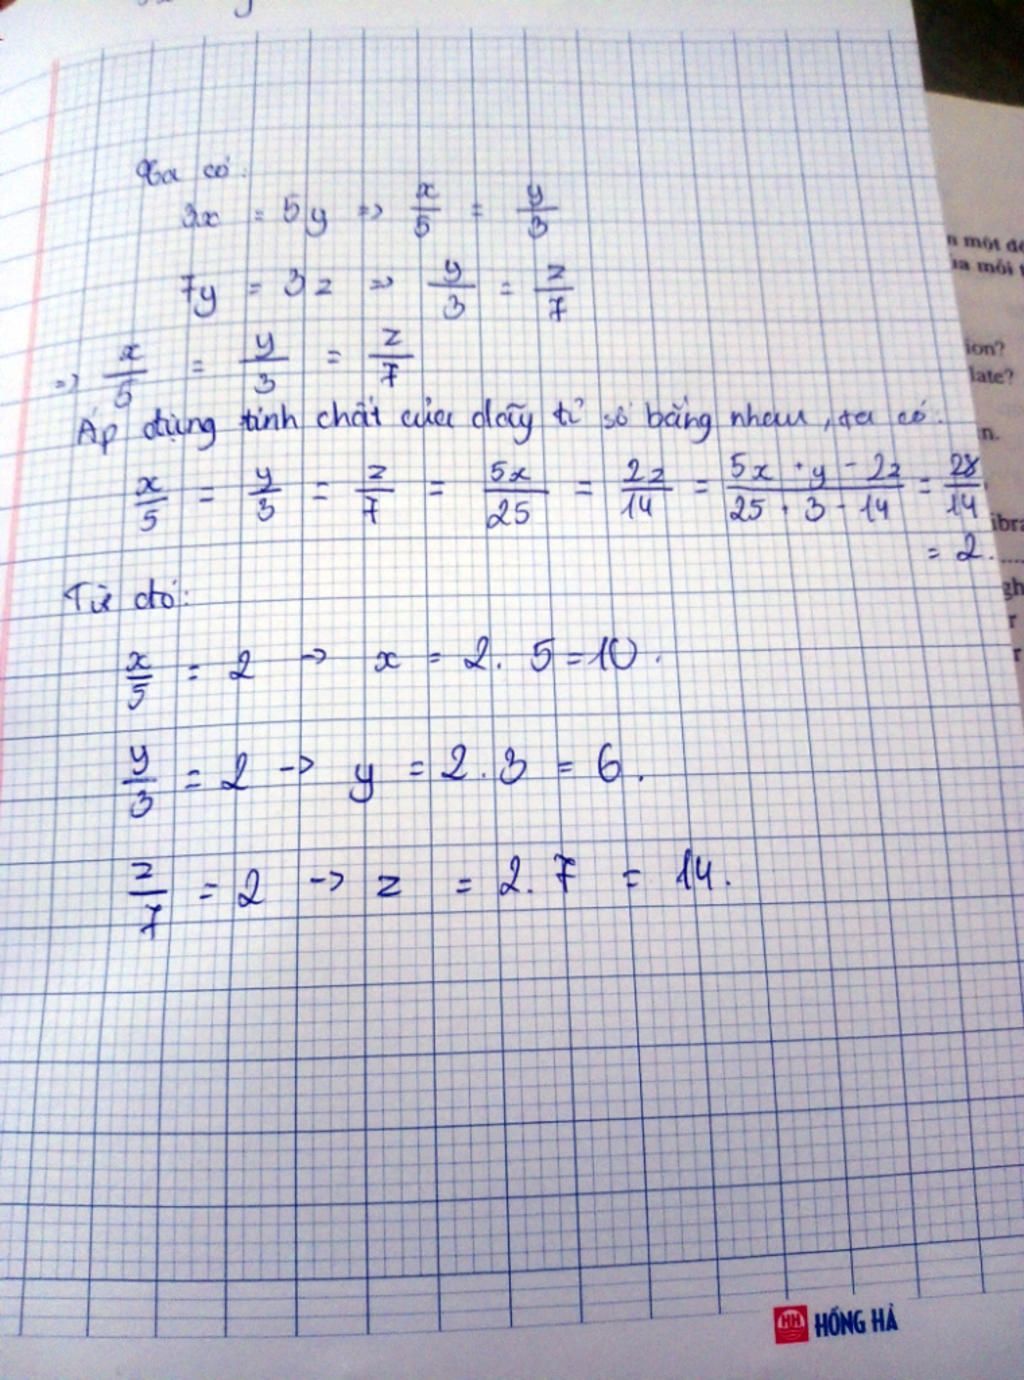 Ta có:
3x = 5y => x/5 = y/3
7y = 3z => y/3 = z/7
=> x/5 = y/3 = z/7
Áp dụng tính chất của dãy tỉ số bằng nhau, ta có:
x/5 = y/3 = z/7 = 5x/25 = 2z/14 = 5x + y - 2z/25 + 3 - 14 = 28/14
= 2.
Từ đó:
x/5 = 2 -> x = 2. 5 = 10.
y/3 = 2 -> y = 2. 3 = 6.
z/7 = 2 -> z = 2. 7 = 14.
một
mỗi
ion?
late?
n.
ibra
gh
r
r
HH HỒNG HÀ